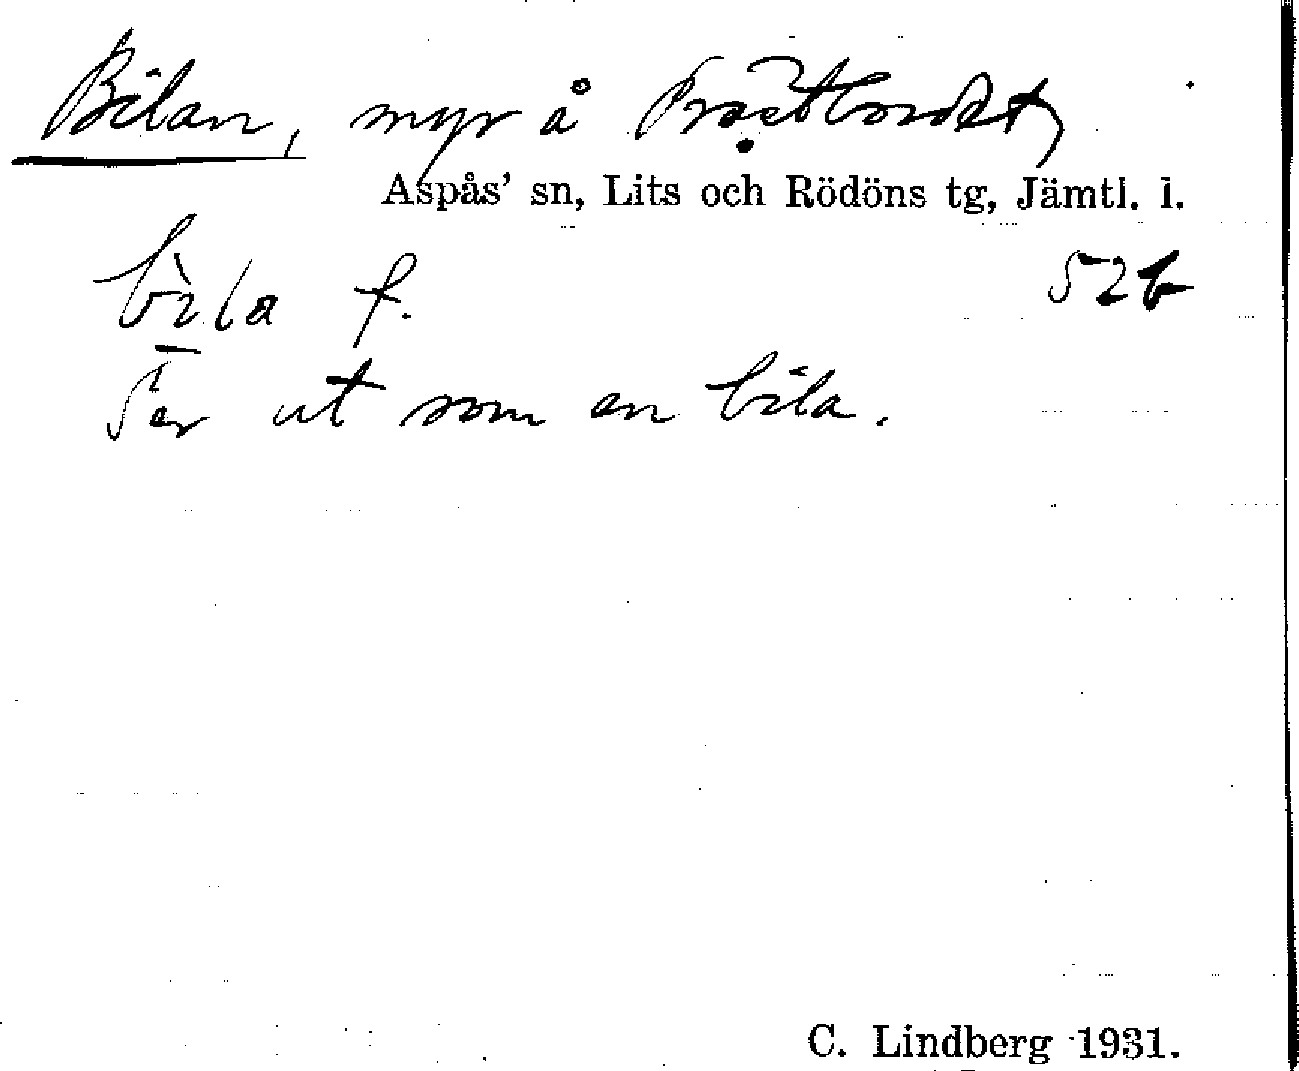 Bilan, myr å Prästbordet,
Aspås' sn, Lits och Rödöns tg, Jämtl. l.
bὶla f. 52b
Ser ut som en bila.
C. Lindberg 1931.